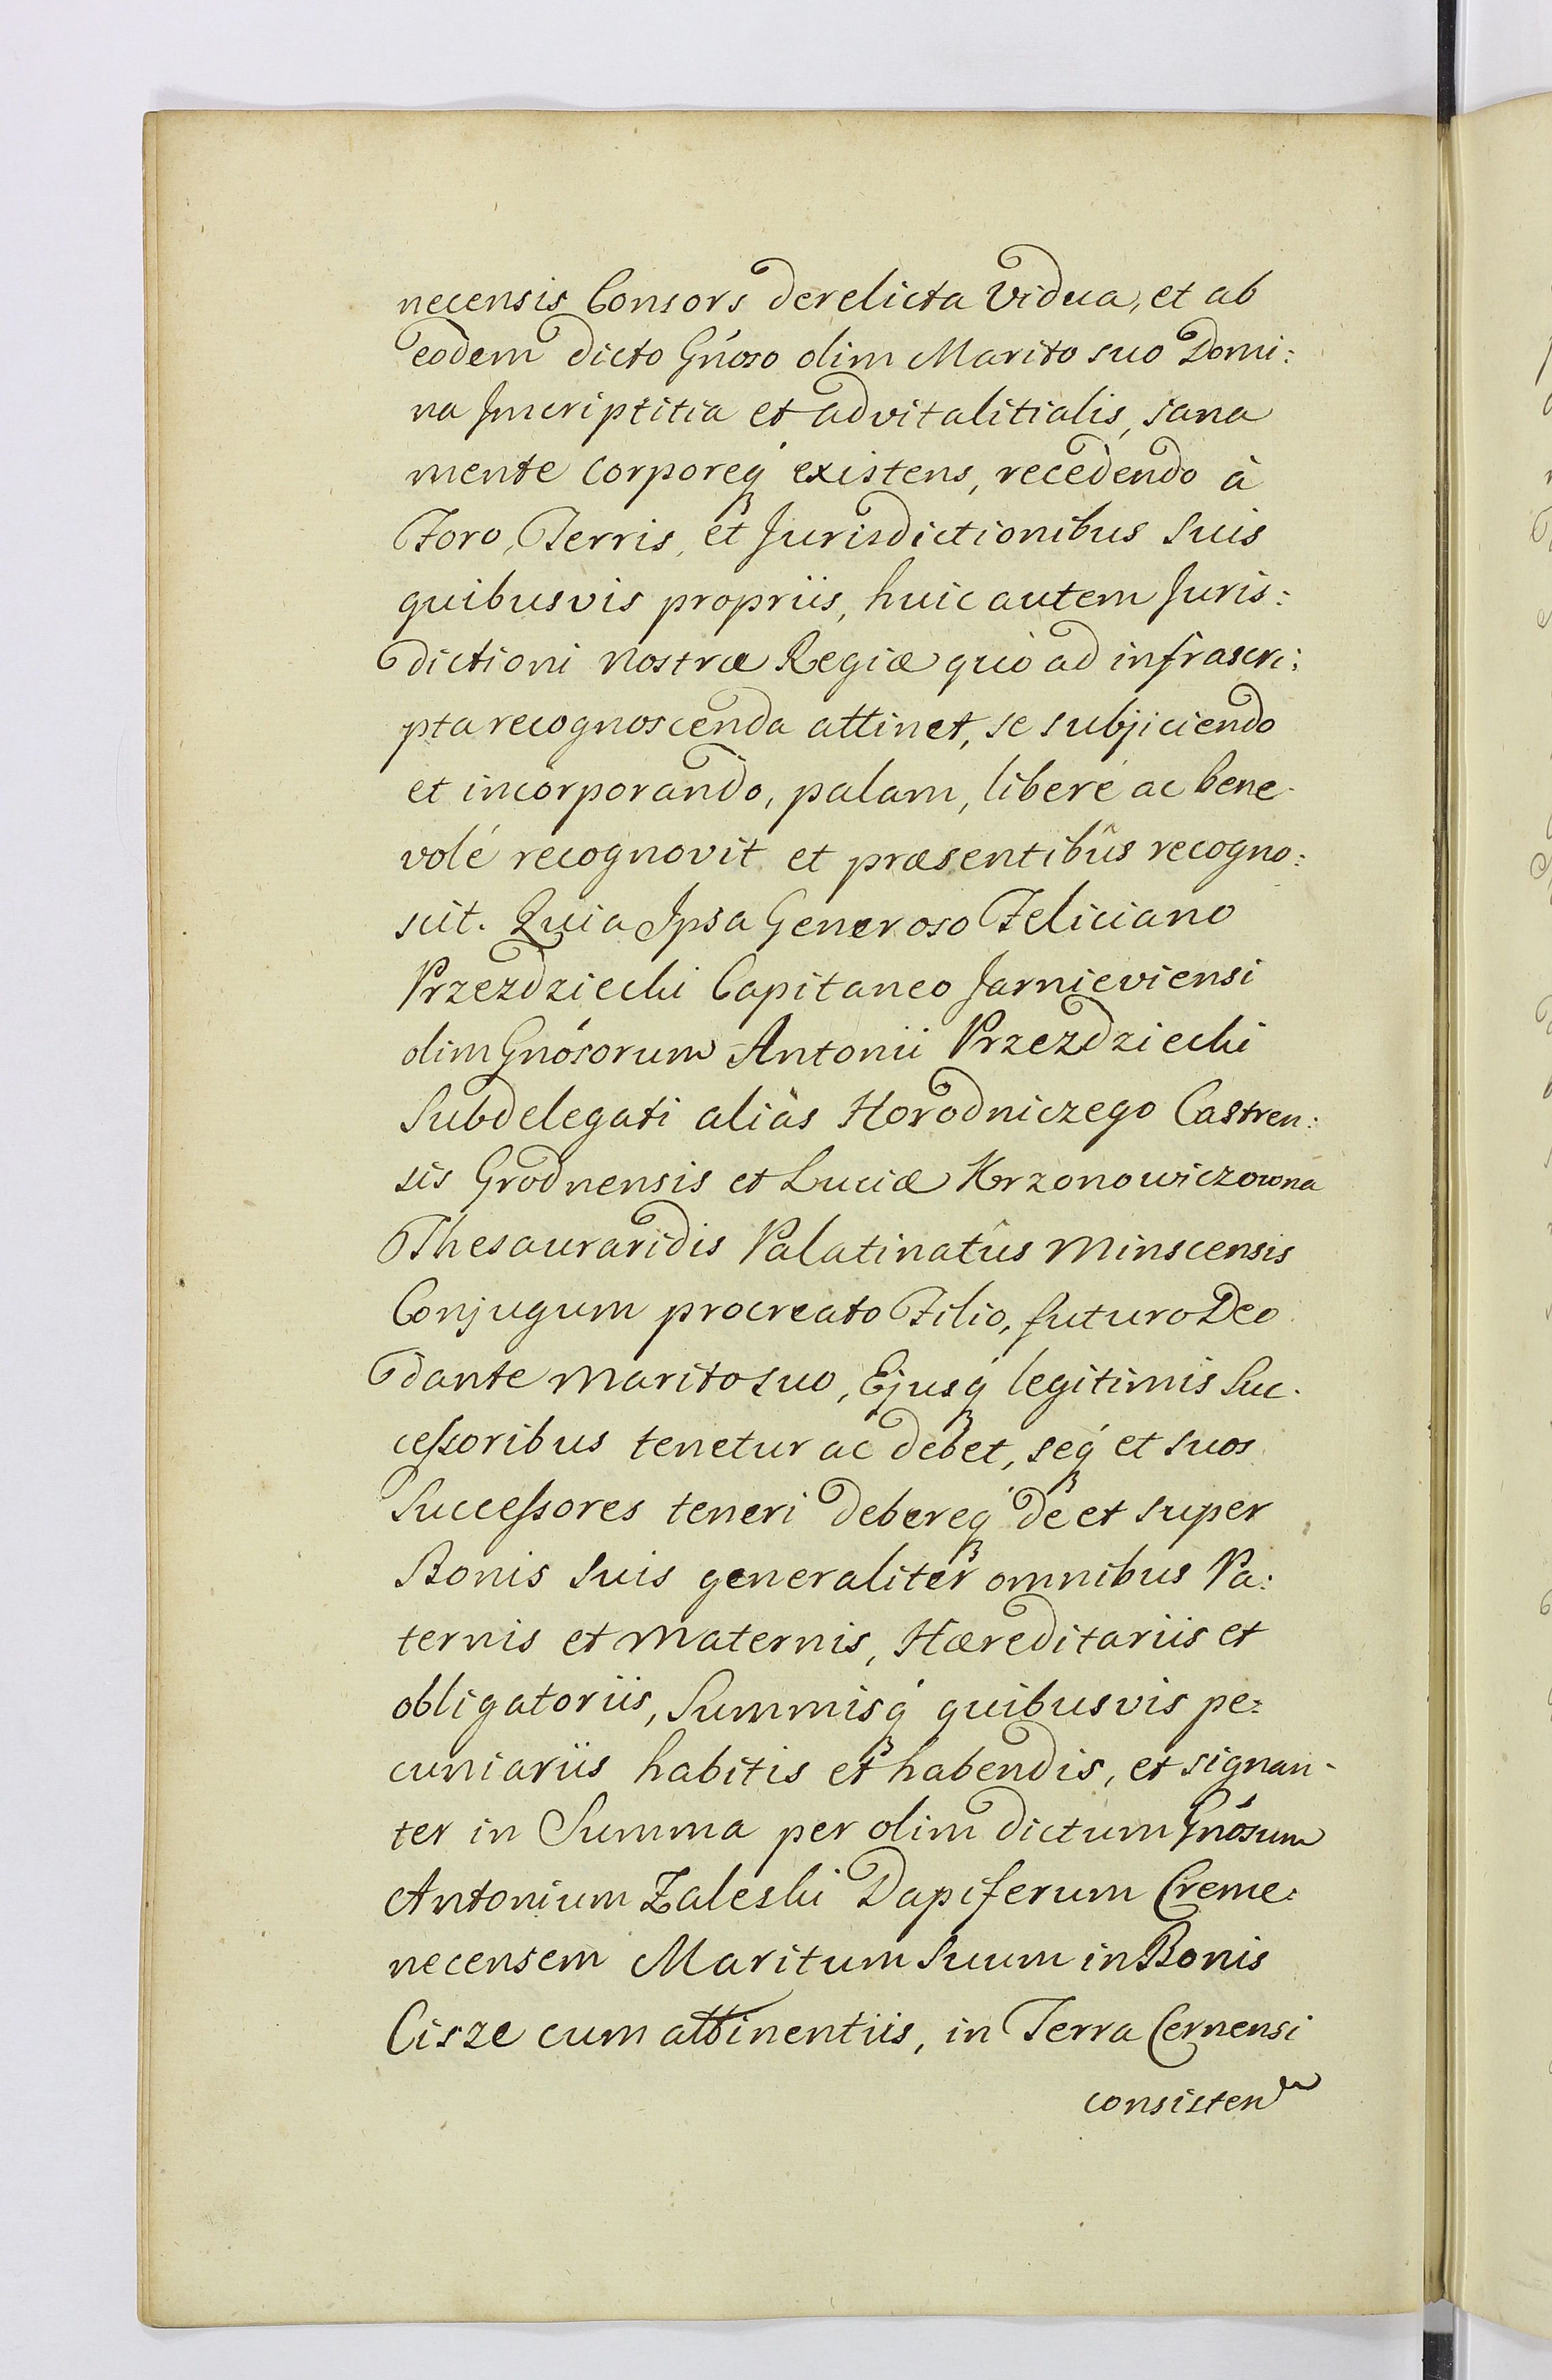 necensis Consors derelicta Vidua, et ab
eodem dicto Gńoso olim Marito suo Domi:
na Inscriptitia et advitalitialis, sana
mente corporeq́ existens, recedendo à
Foro, Terris, et Jurisdictionibus Suis
quibusvis propriis, huic autem Juris:
dictioni Nostræ Regiæ quò ad infrascri:
pta recognoscenda attinet, se subjiciendo
et incorporando, palam, liberé ac bene-
volé recognovit et præsentibûs recogno:
scit. Quia Ipsa Generoso Feliciano
Przezdziecki Capitaneo Jarnieviensi
olim Gnósorum Antonii Przezdziecki
Subdelegati aliàs Horodniczego Castren:
sis Grodnensis et Luciæ Krzonowiczowna
Thesauraridis Palatinatûs Minscensis
Conjugum procreato Filio, futuro Deo
dante Marito suo, Ejusq́ legitimis Suc-
ceſsoribus tenetur ac debet, seq́ et suos
Succeſsores teneri debereq́ de et super
Bonis Suis generaliter omnibus Pa:
ternis et Maternis, Hæreditariis et
obligatoriis, Summisq́ quibusvis pe:
cuniariis habitis et habendis, et signan-
ter in Summa per olim dictum Gnósum
Antonium Zaleski Dapiferum Creme:
necensem Maritum Suum in Bonis
Cisze cum attinentiis, in Terra Cernensi
consisten